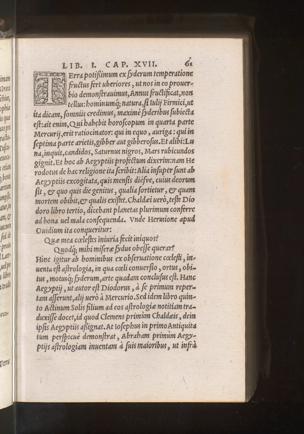 LIB. I. CAP. XVII. 61
TErra potissimum ex syderum temperatione
fructus fert uberiores, ut nos in eo prouer-
bio demonstrauimus, Annus fructificat, non
tellus: hominumq; natura, si Iulij Firmici, ut
ita dicam, somnijs credimus, maximè syderibus subiecta
est: ait enim, Qui habebit horoscopum in quarta parte
Mercurij, erit ratiocinator: qui in equo, auriga: qui in
septima parte arietis, gibber aut gibberosus. Et alibi: Lu
na, inquit, candidos, Saturnus nigros, Mars rubicundos
gignit. Et hoc ab Aegyptijs profectum dixerim: nam He
rodotus de hac religione ita scribit: Alia insuper sunt ab
Aegyptijs excogitata, quis mensis diesue, cuius deorum
sit, & quo quis die genitus, qualia sortietur, & quam
mortem obibit, & qualis existet. Chaldæi uerò, teste Dio
doro libro tertio, dicebant planetas plurimum conferre
ad bona uel mala consequenda. Vnde Hermione apud
Ouidium ita conqueritur:
Quæ mea cœlestes iniuria fecit iniquos?
Quodq; mihi miseræ sydus obesse querar?
Hinc igitur ab hominibus ex obseruatione cœlesti, in-
uenta est astrologia, in qua cœli conuersio, ortus, obi-
tus, motusq; syderum, arte quadam conclusus est. Hanc
Aegyptij, ut autor est Diodorus, à se primum reper-
tam asserunt, alij uerò à Mercurio. Sed idem libro quin-
to Actinum Solis filium ad eos astrologiæ notitiam tra-
duxisse docet, id quod Clemens primùm Chaldæis, dein
ipsis Aegyptijs assignat. At Iosephus in primo Antiquita
tum perspicuè demonstrat, Abraham primùm Aegy-
ptijs astrologiam inuentam à suis maioribus, ut infrà